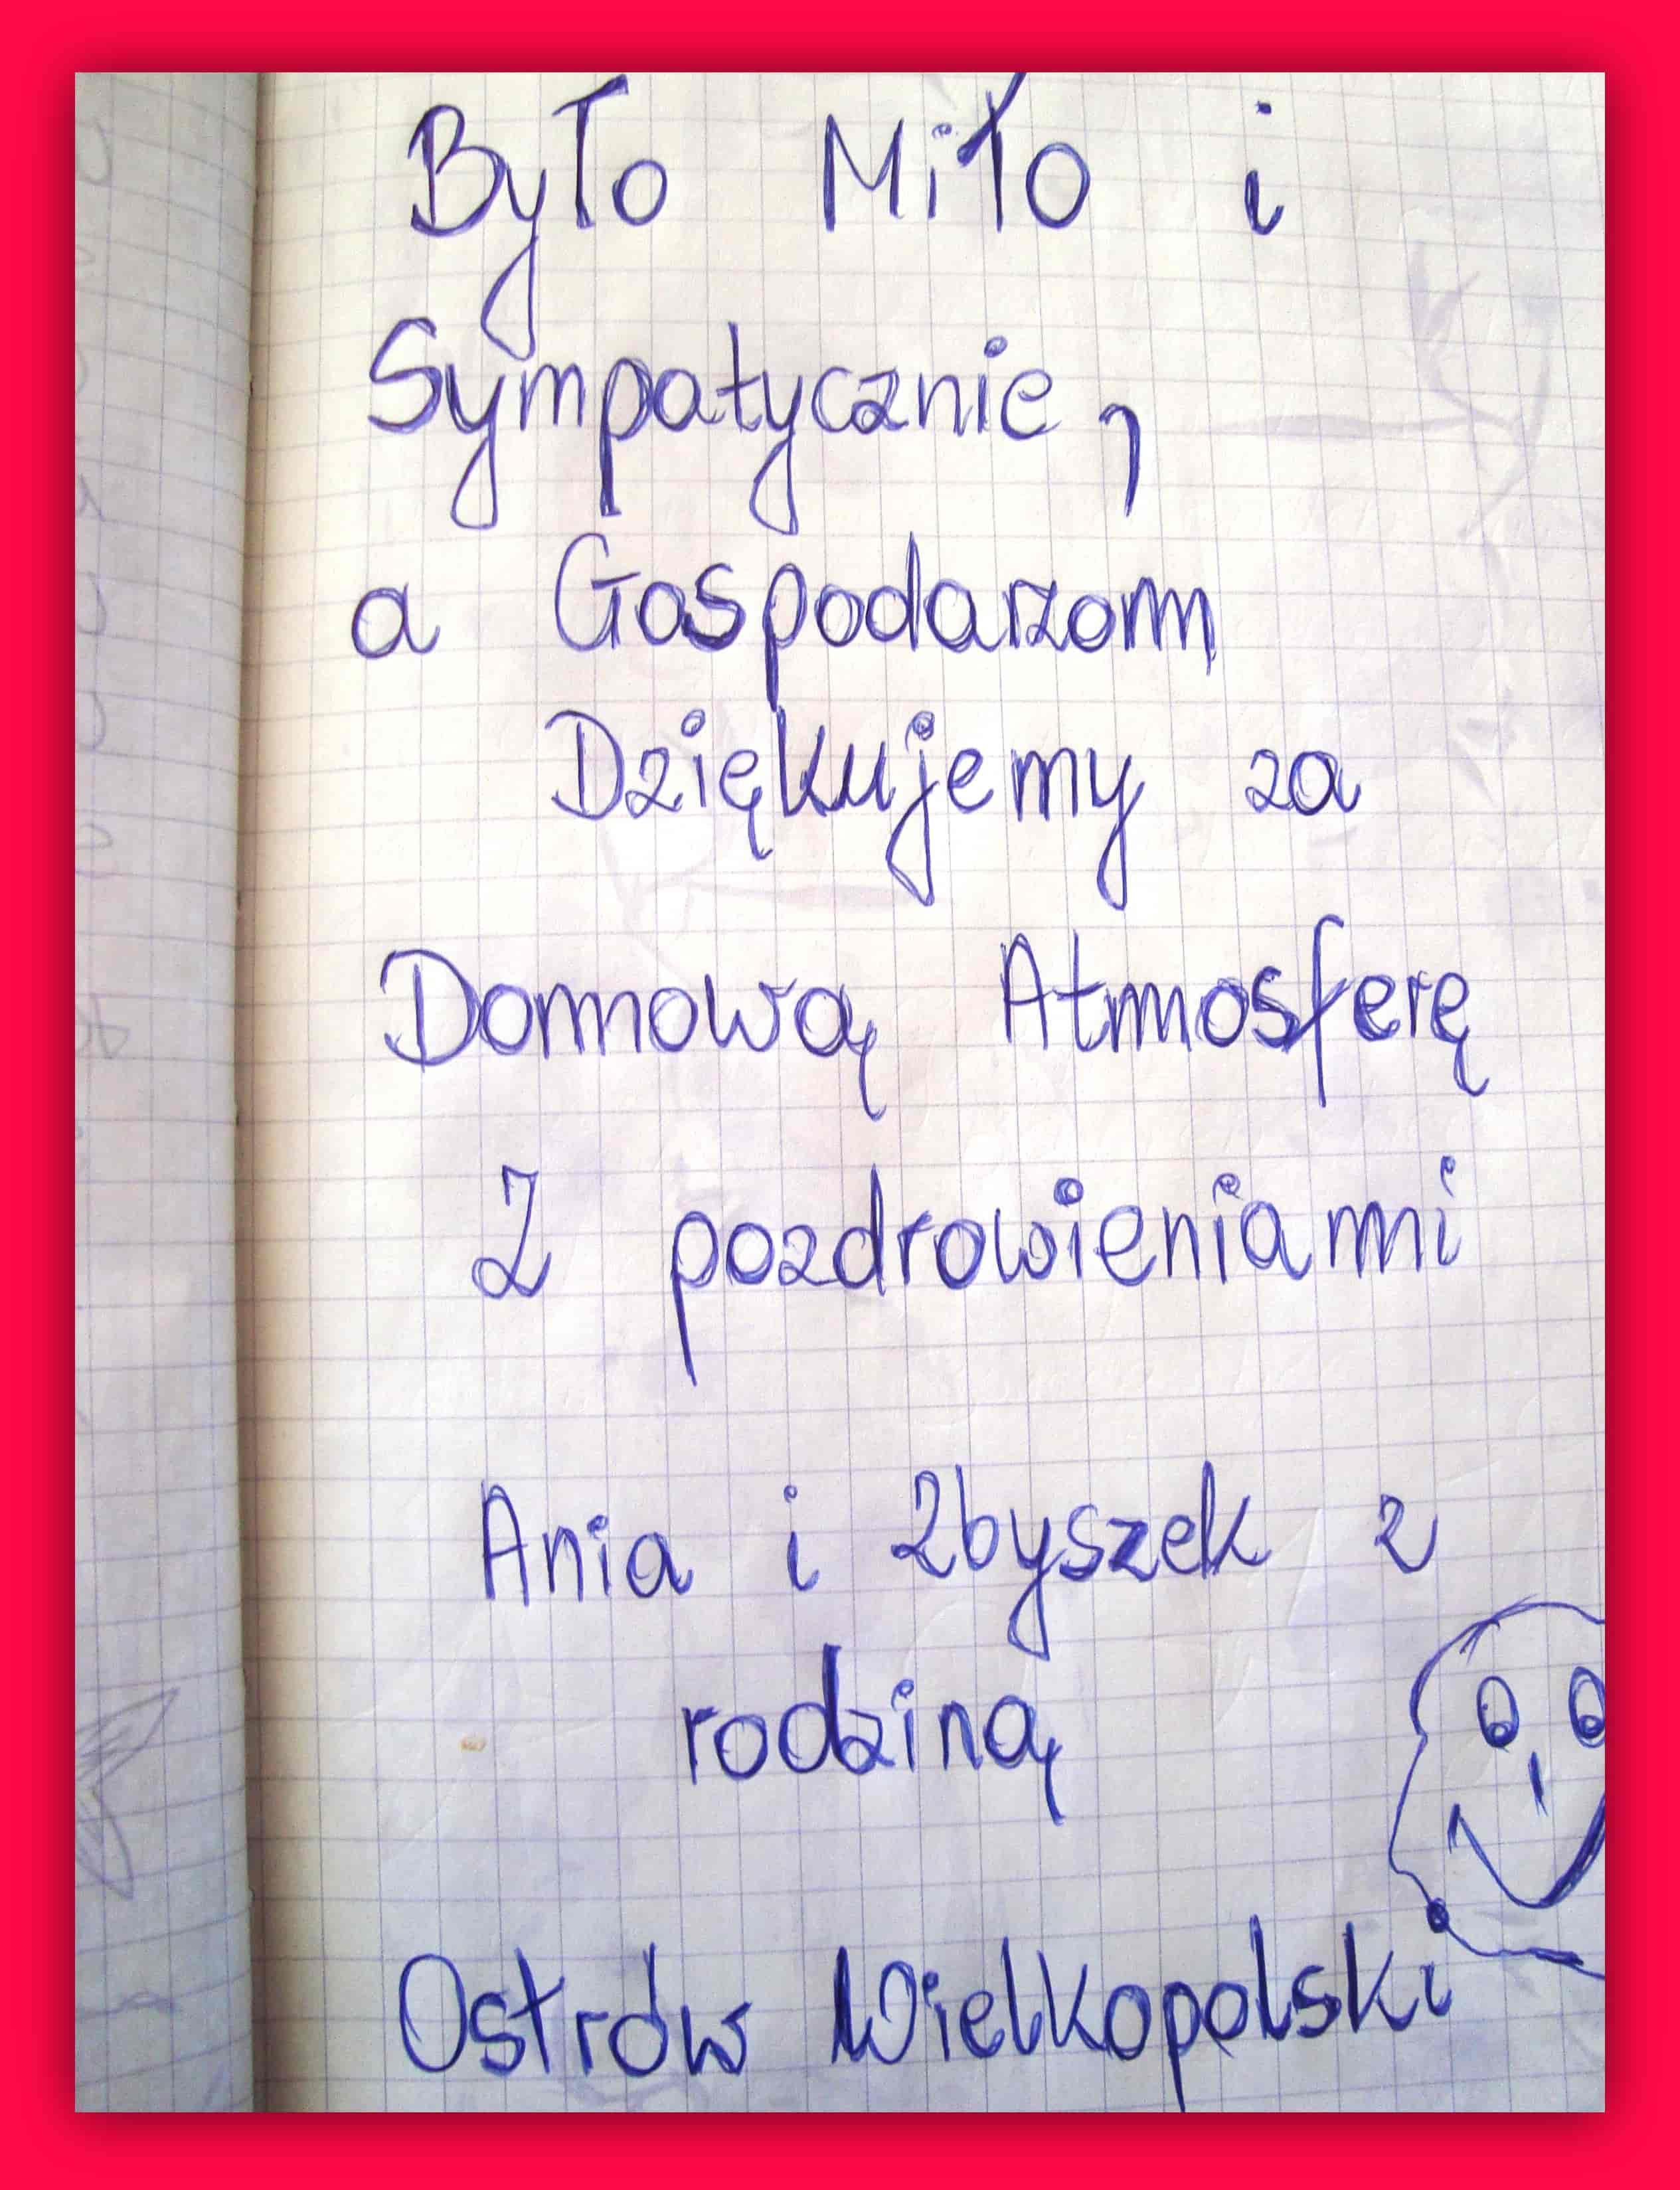 Było Miło i
Sympatycznie,
a Gospodarzom
Dziękujemy za
Domową Atmosferę
Z pozdrowieniami
Ania i Zbyszek z
rodziną
Ostrów Wielkopolski